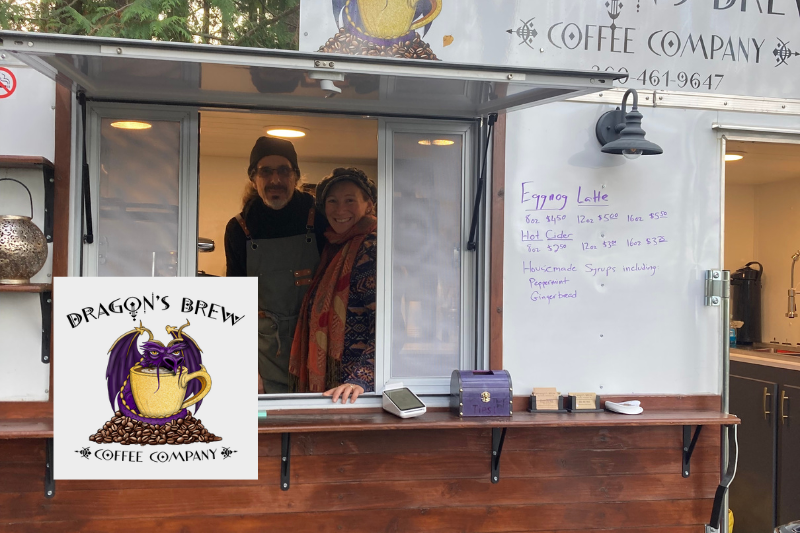 COFFEE COMPANY
360-461-9647
Eggnog Latte
8oz $4.50 12oz $5.00 16oz $5.50
Hot Cider
8oz $2.50 12oz $3.00 16oz $3.75
Housemade Syrups including
Peppermint
Gingerbread
DRAGON'S BREW
COFFEE COMPANY